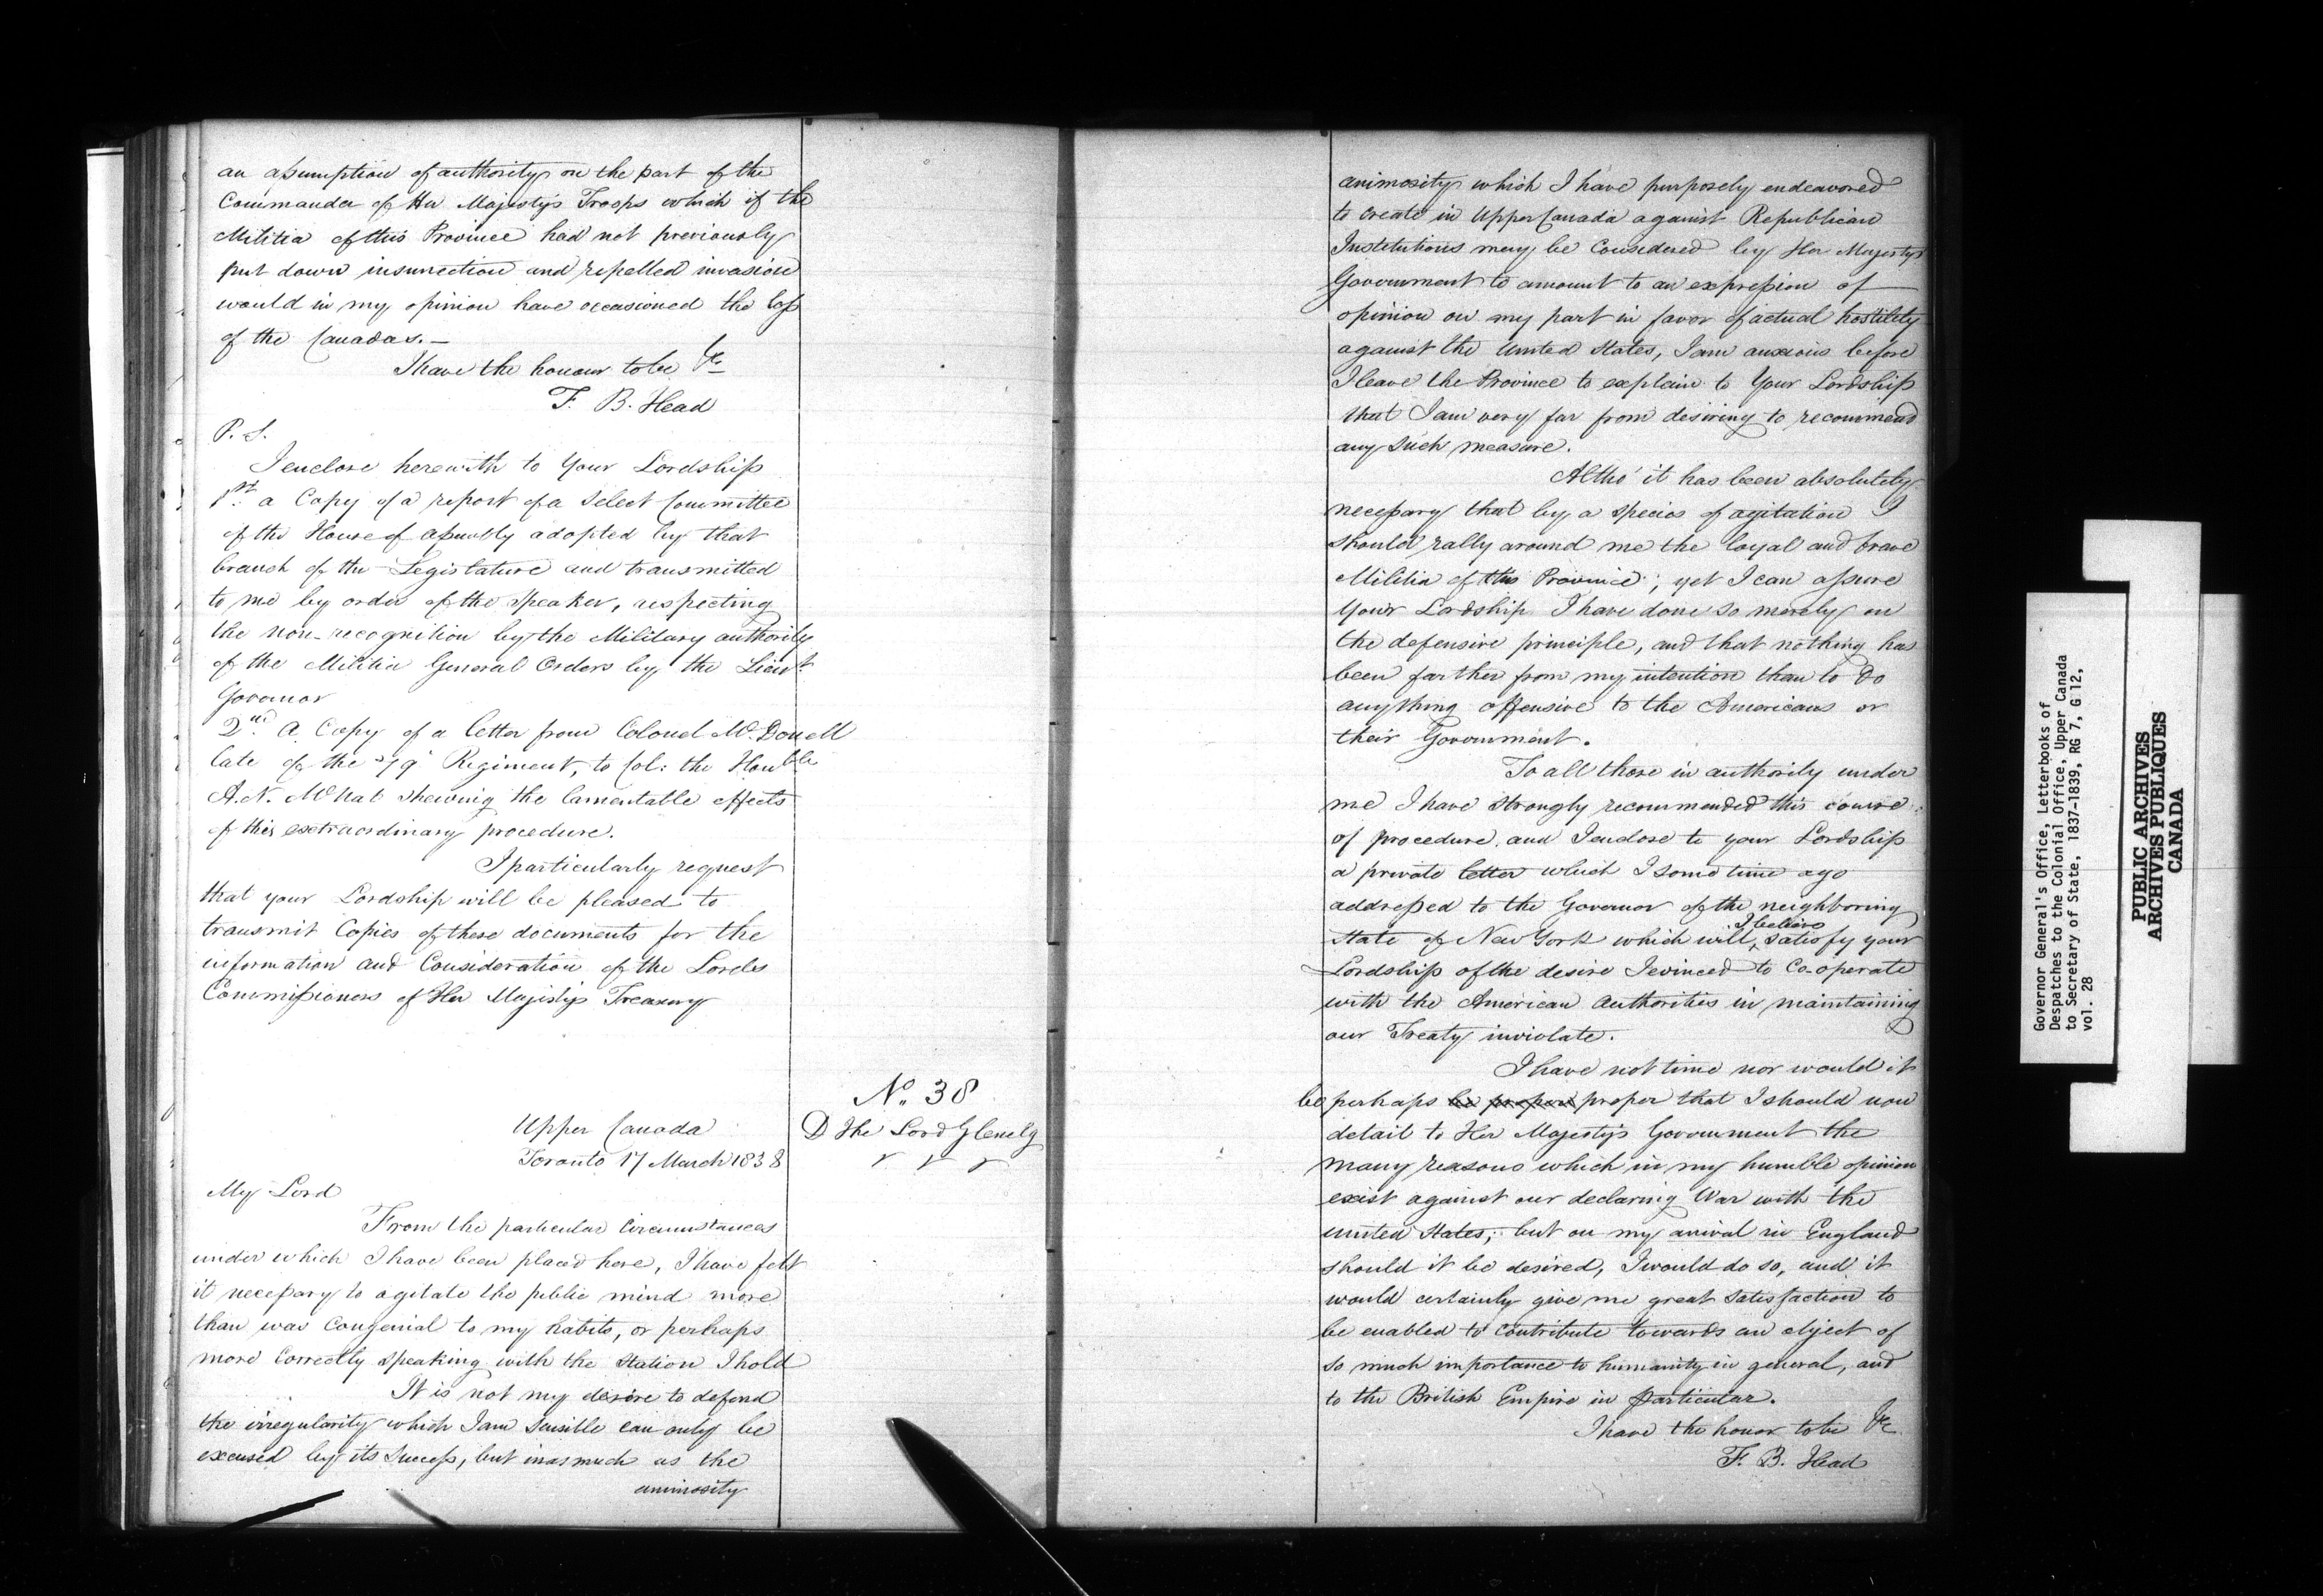 an assumption of authority on the part of the
Commander of Her Majesty's Troops which if the
Militia of this Province had not previously
put down insurrection and repelled invasion
would in my opinion have occasioned the loss
of the Canadas.—
I have the honour to be &c
F. B. Head
P. S.
I enclose herewith to Your Lordship
1st. a Copy of a report of a Select Committee
of the House of Assembly adopted by that
branch of the Legislature and transmitted
to me by order of the Speaker, respecting
the non-recognition by the Military authority
of the Militia General Orders by the Lieut.
Governor
2nd. A Copy of a letter from Colonel McDonell
late of the 79 Regiment, to Col: the Honble
A. N. McNab shewing the lamentable effects
of this extraordinary procedure.
I particularly request
that your Lordship will be pleased to
transmit Copies of these documents for the
information and Consideration of the Lords
Commissioners of Her Majesty's Treasury
No. 38
D The Lord Glenelg
Upper Canada
Toronto 17 March 1838
My Lord
From the particular Circumstances
under which I have been placed here, I have felt
it necessary to agitate the public mind more
than was Congenial to my habits, or perhaps
more Correctly speaking with the Station I hold
It is not my desire to defend
the irregularity which I am sensible can only be
excused by its success, but inasmuch as the
animosity
animosity which I have purposely endeavored
to create in Upper Canada against Republican
Institutions may be Considered by Her Majesty's
Government to amount to an expression of
opinion on my part in favor of actual hostility
against the United States, I am anxious before
I leave the Province to explain to Your Lordship
that I am very far from desiring to recommend
any such measure.
Altho' it has been absolutely
necessary that by a species of agitation I
should rally around me the loyal and brave
Militia of this Province; yet I can assure
Your Lordship I have done so merely on
the defensive principle, and that nothing has
been farther from my intention than to do
anything offensive to the Americans or
their Government.
To all those in authority under
me I have strongly recommended this course
of procedure, and I enclose to your Lordship
a private letter which I some time ago
addressed to the Governor of the neighboring
State of New York which will, I believe satisfy your
Lordship of the desire I evinced to Co-operate
with the American authorities in maintaining
our Treaty inviolate.
I have not time nor would it
be perhaps be proper proper that I should now
detail to Her Majesty's Government the
many reasons which in my humble opinion
exist against our declaring War with the
United States; but on my arrival in England
should it be desired, I would do so, and it
would certainly give me great satisfaction to
be enabled to contribute towards an object of
so much importance to humanity in general, and
to the British Empire in particular.
I have the honor to be &c
F. B. Head
Governor General's Office, Letterbooks of
Despatches to the Colonial Office, Upper Canada
to Secretary of State, 1837-1839, RG 7, G 12,
vol. 28
PUBLIC ARCHIVES
ARCHIVES PUBLIQUES
CANADA